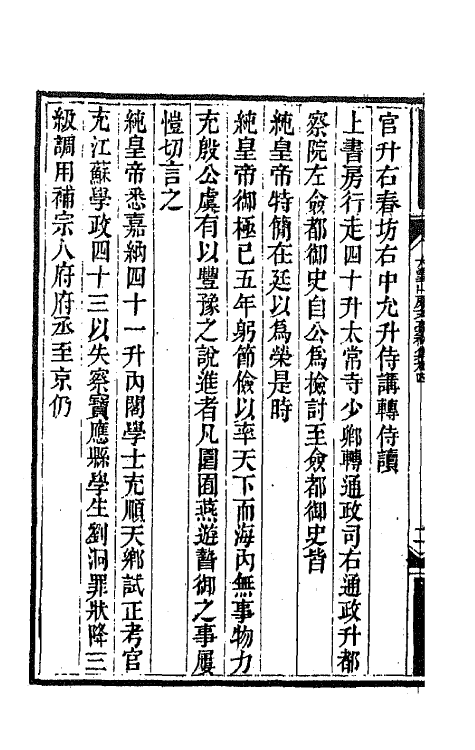 官升右春坊右中允升侍講轉侍讀
上書房行走四十升太常寺少卿轉通政司右通政升都
察院左僉都御史自公爲檢討至僉都御史皆
純皇帝特簡在廷以爲榮是時
純皇帝御極已五年躬節儉以率天下而海內無事物力
充殷公虞有以豐豫之說進者凡園囿燕遊暬御之事屢
愷切言之
純皇帝悉嘉納四十一升內閣學士充順天鄉試正考官
充江蘇學政四十三以失察寶應縣學生劉洞罪狀降三
級調用補宗人府府丞至京仍